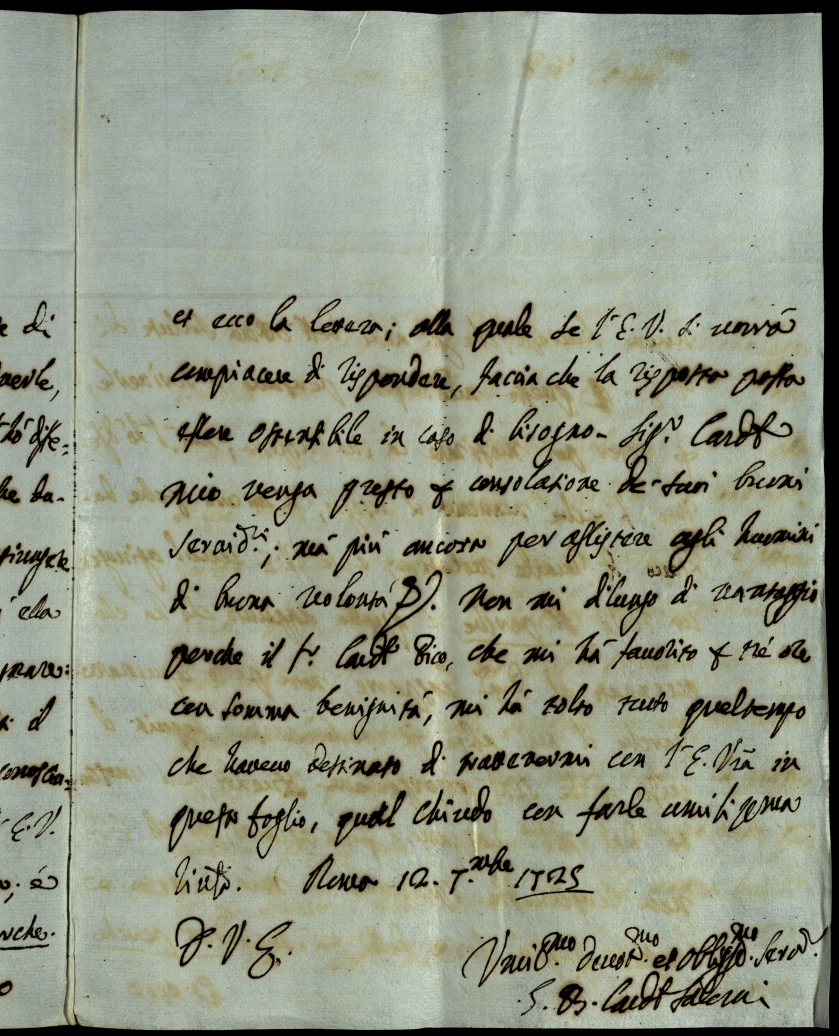 et ecco la lettera; alla quale se l'E. V. si vorrà
compiacere di rispondere, faccia che la risposta possa
essere ostensibile in caso di bisogno. Sig.r Card.l
mio venga presto per consolatione de suoi buoni
Servid.ri; mà più ancora per assistere agli huomini
di buona volontà. Non mi dilungo di vantaggio
perche il S.r Card.l Pico, che mi hà favorito per trè ore
con somma benignità, mi hà tolto tutto quel tempo
che havevo destinato di trattenermi con l'E. V.ra in
questo foglio, qual chiudo con farle umilissima
River.za. Roma 12. 7.mbre 1725
D. V. E.
Umil.mo Devot.mo et Obblig.mo Serv.r
G. B. Card.l Salerni
e di
hà dife-
he da-
ella
il
l'E. V.